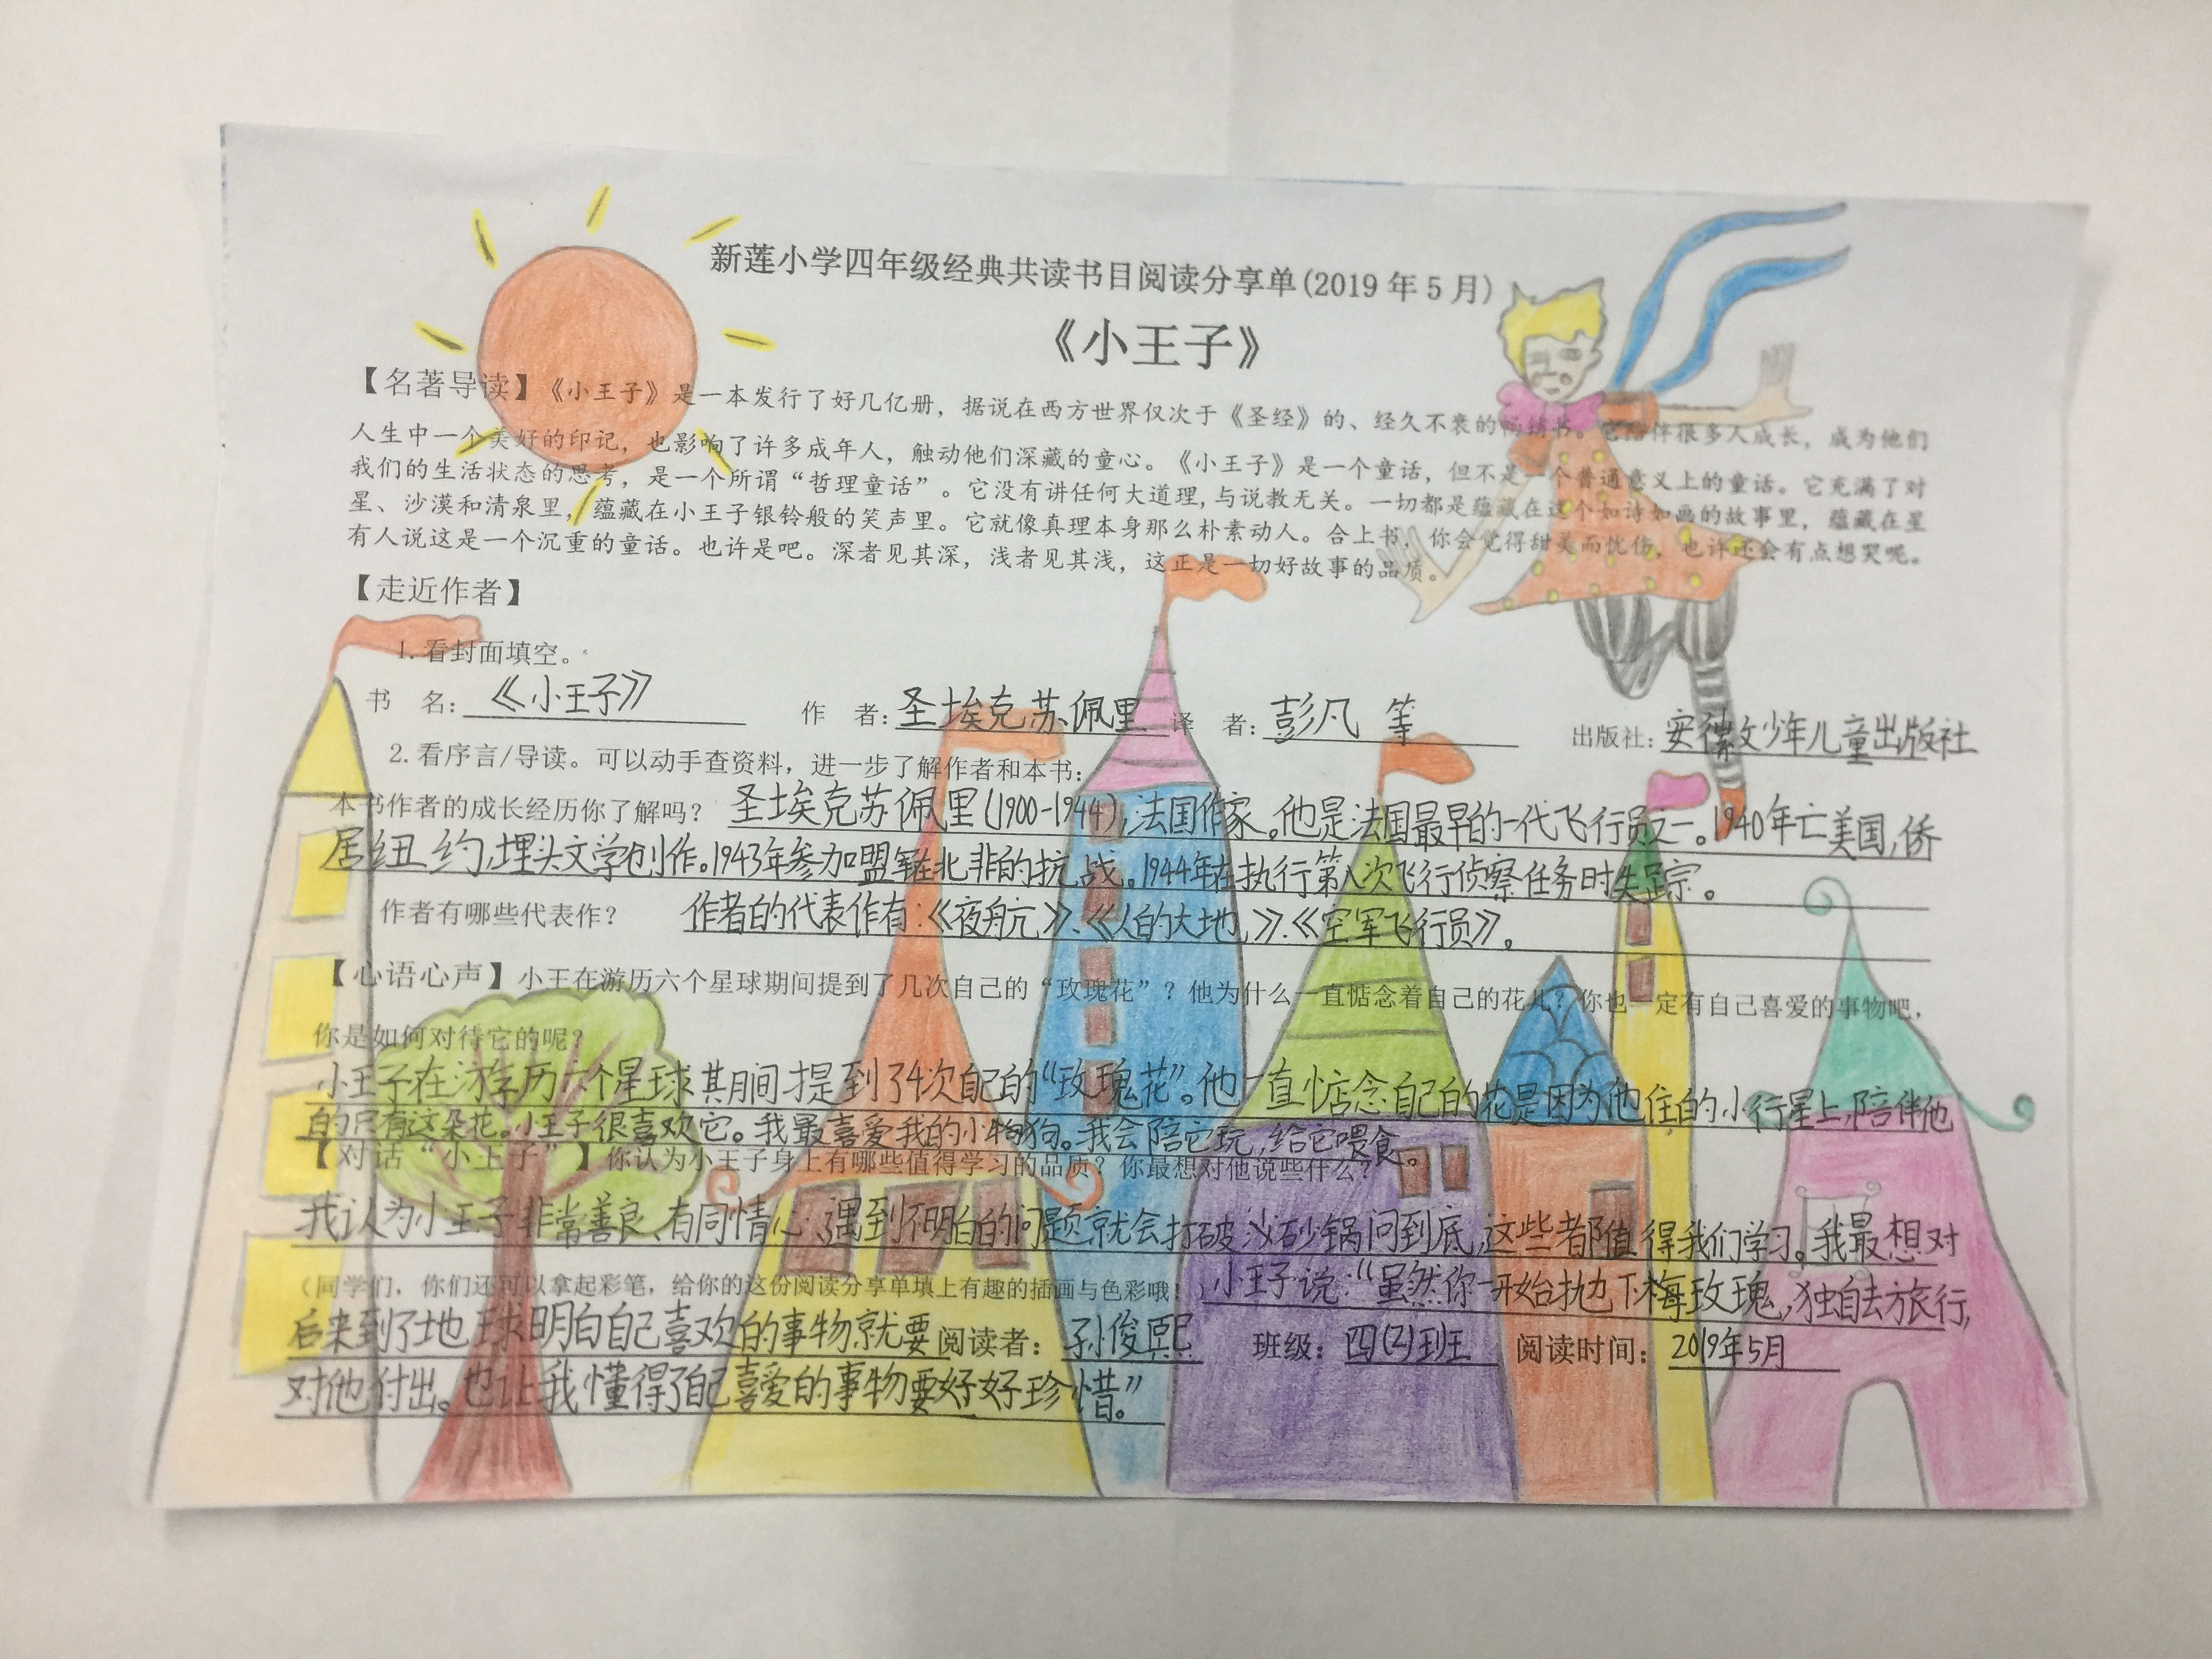 新莲小学四年级经典共读书目阅读分享单(2019 年 5 月)
《小王子》
【名著导读】《小王子》是一本发行了好几亿册，据说在西方世界仅次于《圣经》的、经久不衰的畅销书。它陪伴很多人成长，成为他们
人生中一个美好的印记，也影响了许多成年人，触动他们深藏的童心。《小王子》是一个童话，但不是一个普通意义上的童话。它充满了对
我们的生活状态的思考，是一个所谓“哲理童话”。它没有讲任何大道理,与说教无关。一切都是蕴藏在这个如诗如画的故事里，蕴藏在星
星、沙漠和清泉里，蕴藏在小王子银铃般的笑声里。它就像真理本身那么朴素动人。合上书，你会觉得甜美而忧伤，也许还会有点想哭呢。
有人说这是一个沉重的童话。也许是吧。深者见其深，浅者见其浅，这正是一切好故事的品质。
【走近作者】
1.看封面填空。
书 名：《小王子》 作 者：圣埃克苏佩里 译 者：彭凡 等 出版社：安徽文少年儿童出版社
2.看序言/导读。可以动手查资料，进一步了解作者和本书：
本书作者的成长经历你了解吗？ 圣埃克苏佩里(1900-1944),法国作家。他是法国最早的一代飞行员之一。1940年亡美国,侨
居纽约,埋头文学创作。1943年参加盟军在北非的抗战。1944年在执行第八次飞行侦察任务时失踪。
作者有哪些代表作？ 作者的代表作有:《夜航》、《人的大地》、《空军飞行员》。
【心语心声】小王在游历六个星球期间提到了几次自己的“玫瑰花”？他为什么一直惦念着自己的花儿？你也一定有自己喜爱的事物吧，
你是如何对待它的呢？
小王子在游历六个星球其期间提到了4次自己的“玫瑰花”。他一直惦念自己的花是因为他住的小行星上,陪伴他
的只有这朵花。小王子很喜欢它。我最喜爱我的小狗狗。我会陪它玩,给它喂食。
【对话“小王子”】你认为小王子身上有哪些值得学习的品质？你最想对他说些什么？
我认为小王子非常善良、有同情心、遇到不明白的问题就会打破沙砂锅问到底,这些都值得我们学习。我最想对
（同学们，你们还可以拿起彩笔，给你的这份阅读分享单填上有趣的插画与色彩哦！）小王子说：“虽然你一开始抛下玫瑰,独自去旅行,
后来到了地球明白自己喜欢的事物就要 阅读者：孙俊熙 班级：四(2)班 阅读时间：2019年5月
对他付出。也让我懂得了自己喜爱的事物要好好珍惜。”